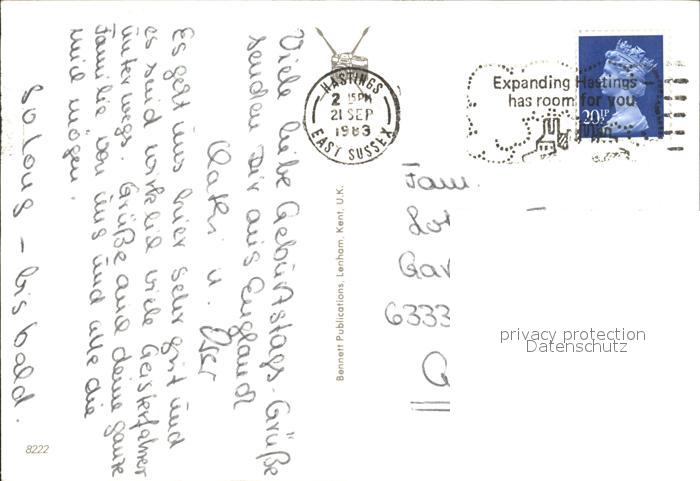 Viele liebe Geburtstags-Grüße
senden Dir aus England
u.
Es geht uns hier sehr gut und
es sind wirklich viele Geisterfahrer
unterwegs. Grüße auch deine ganze
Familie von uns und alle die
mich mögen.
So long – bis bald.
8222
Bennett Publications, Lenham, Kent, U.K.
HASTINGS
2 15PM
21 SEP
1983
EAST SUSSEX
Expanding Hastings
has room for you
20½P
Fam.
6333
privacy protection
Datenschutz